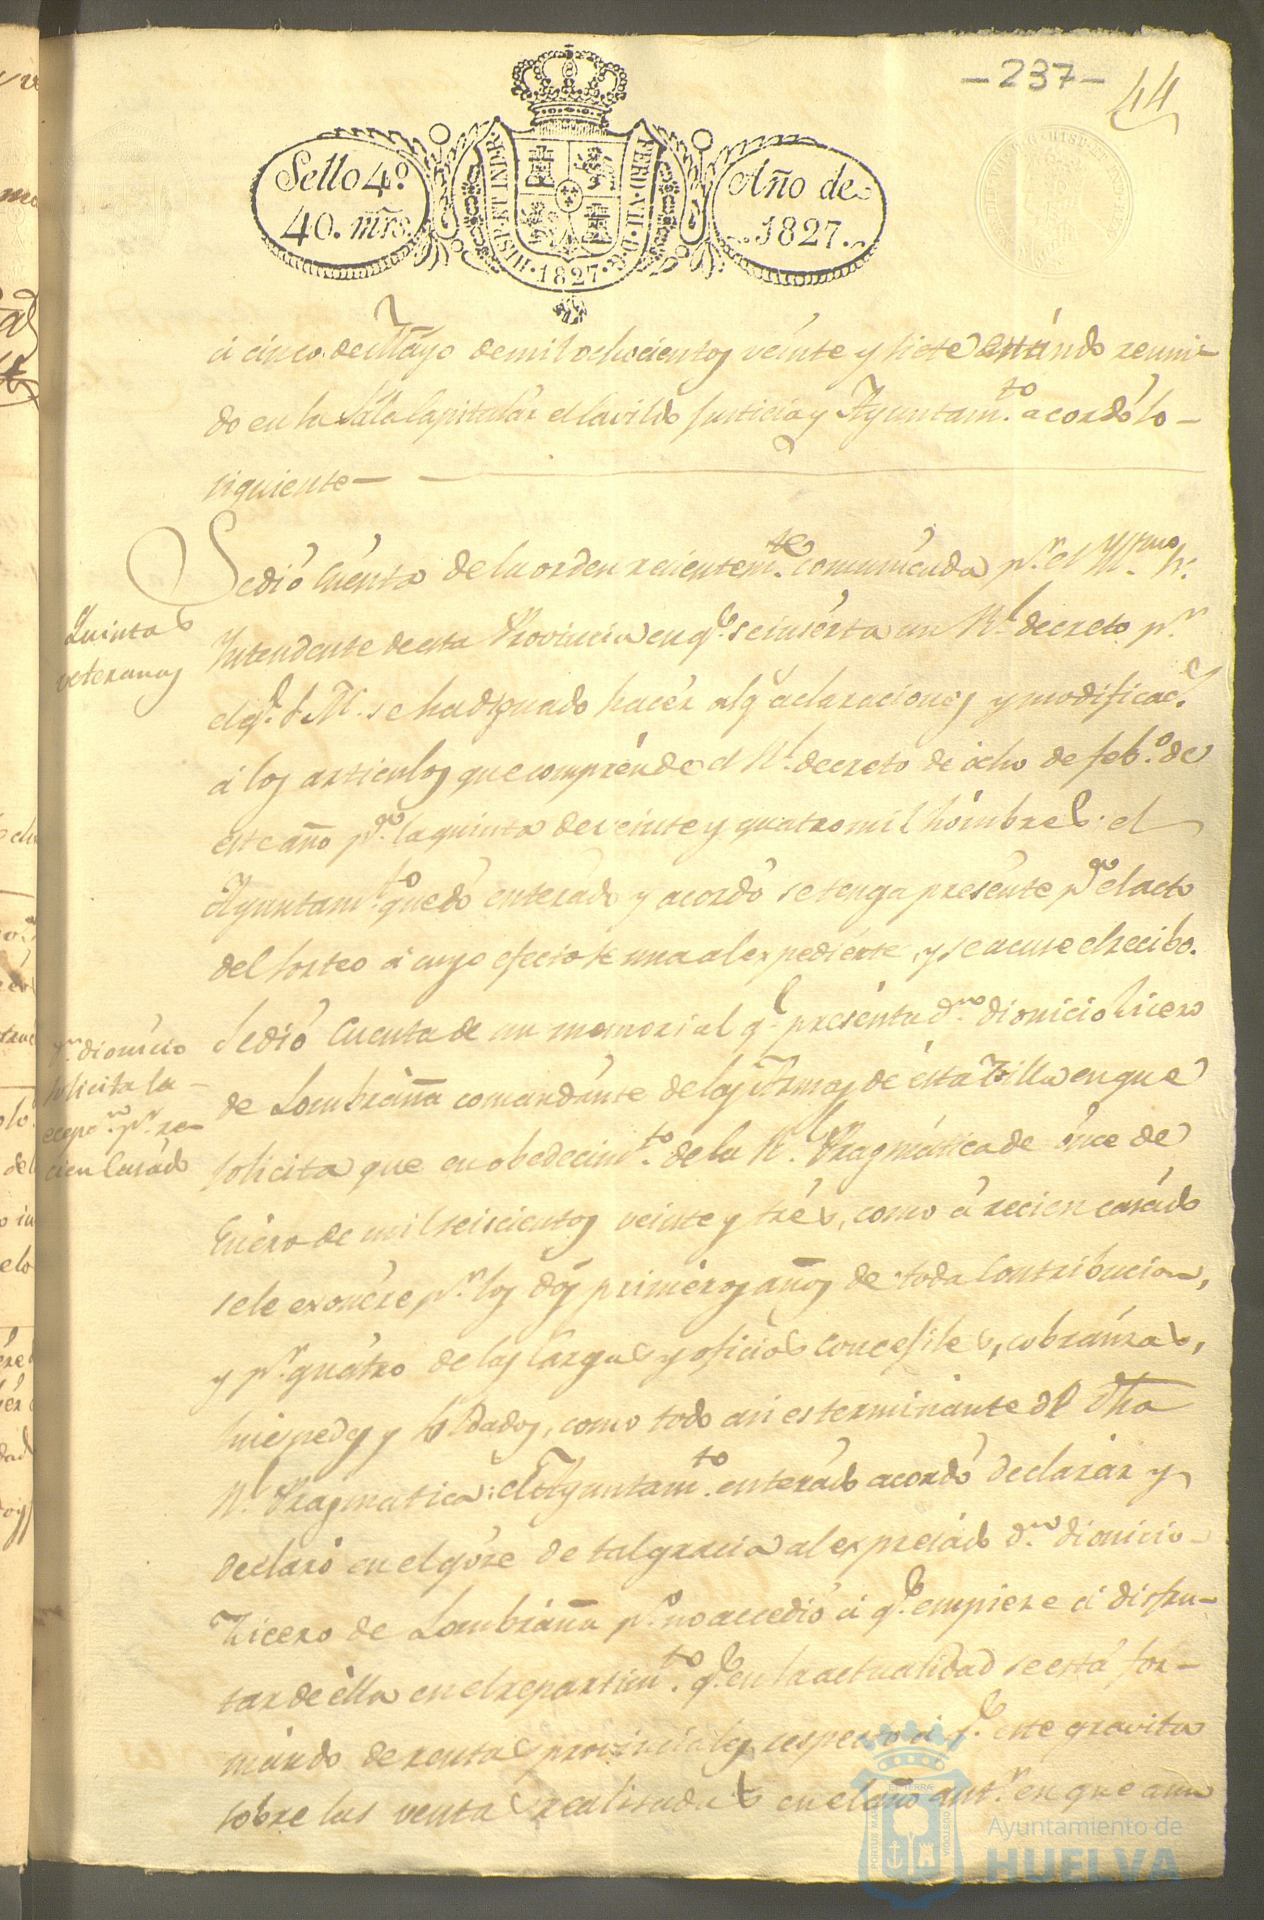 - 237 -
44
Sello 4º
40. mrs.
HISP. ET IND. R. FERD. VII. D. G. 1827
Año de
1827.
á cinco de Mayo de mil ochocientos veinte y siete estándo reuni-
do en la Sala Capitular el Cavildo Justicia y Ayuntam.to acordó lo
siguiente
Quintas
veteranas
Se dió Cuenta de la orden recientem.te comunicada p.r el Sr.
Intendente de esta Provincia en q.e se insérta un R.l decreto p.r
el q.e S. M. se ha dignado hacér alg.s aclaraciones y modificac.s
á los articulos que comprénde el R.l decreto de ócho de feb.o de
este año p.a la quinta de veinte y quatro mil hómbres: el
Ayuntam.to quedó enterádo y acordó se tenga presénte p.a el acto
del sorteo á cuyo efecto se una al expediénte, y se acuse el recibo.
D.n dionicio
solicita la
ecepc.n p.r re-
cien Casádo
Se dió Cuenta de un memorial q.e presénta d.n dionicio Licero
de Lombráña comandánte de las Armas de ésta Villa en que
solicita que en obedecim.to de la R.l Pragmática de ónce de
Enéro de mil seiscientos veinte y trés, como á recien casádo
se le exonére p.r los dós priméros años de toda Contribucion,
y p.r quátro de las Cargas y oficios Concegiles, cobránzas,
huéspedes y Soldados, como todo asi es terminante de dha
R.l Pragmatica: el Ayuntam.to enterádo acordó declarár y
declaró en el góze de tal gracia al expresádo d.n dionicio
Licero de Lombráña p.o no accedió á q.e empieze á disfru-
tar de élla en el repartim.to q.e en la actualidad se está for-
mándo de rentas provinciales respecto á q.e este gravita
sobre las ventas realisadas en el año ant.r en que aun
Ayuntamiento de
HUELVA